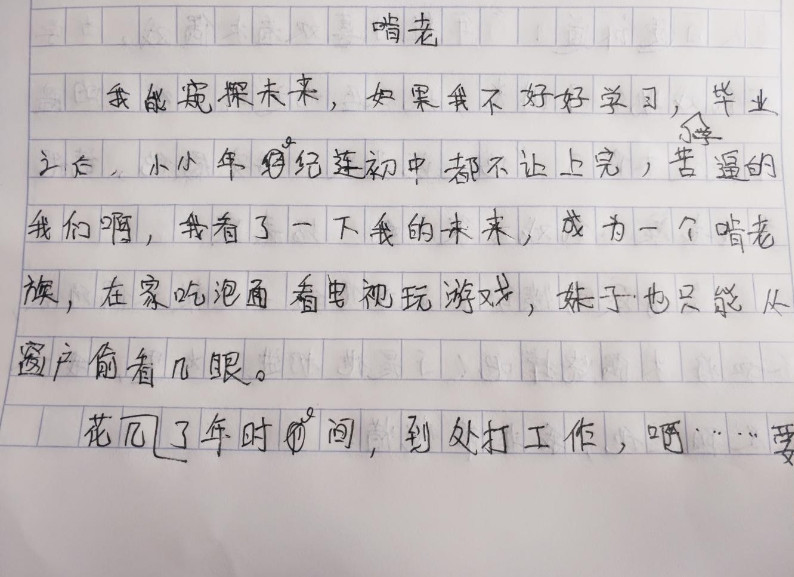 啃老
我能窥探未来，如果我不好好学习，小学毕业
之后，小小年纪连初中都不让上完，苦逼的
我们啊，我看了一下我的未来，成为一个啃老
族，在家吃泡面看电视玩游戏，妹子也只能从
窗户偷看几眼。
花了几年时间，到处打工作，啊……要